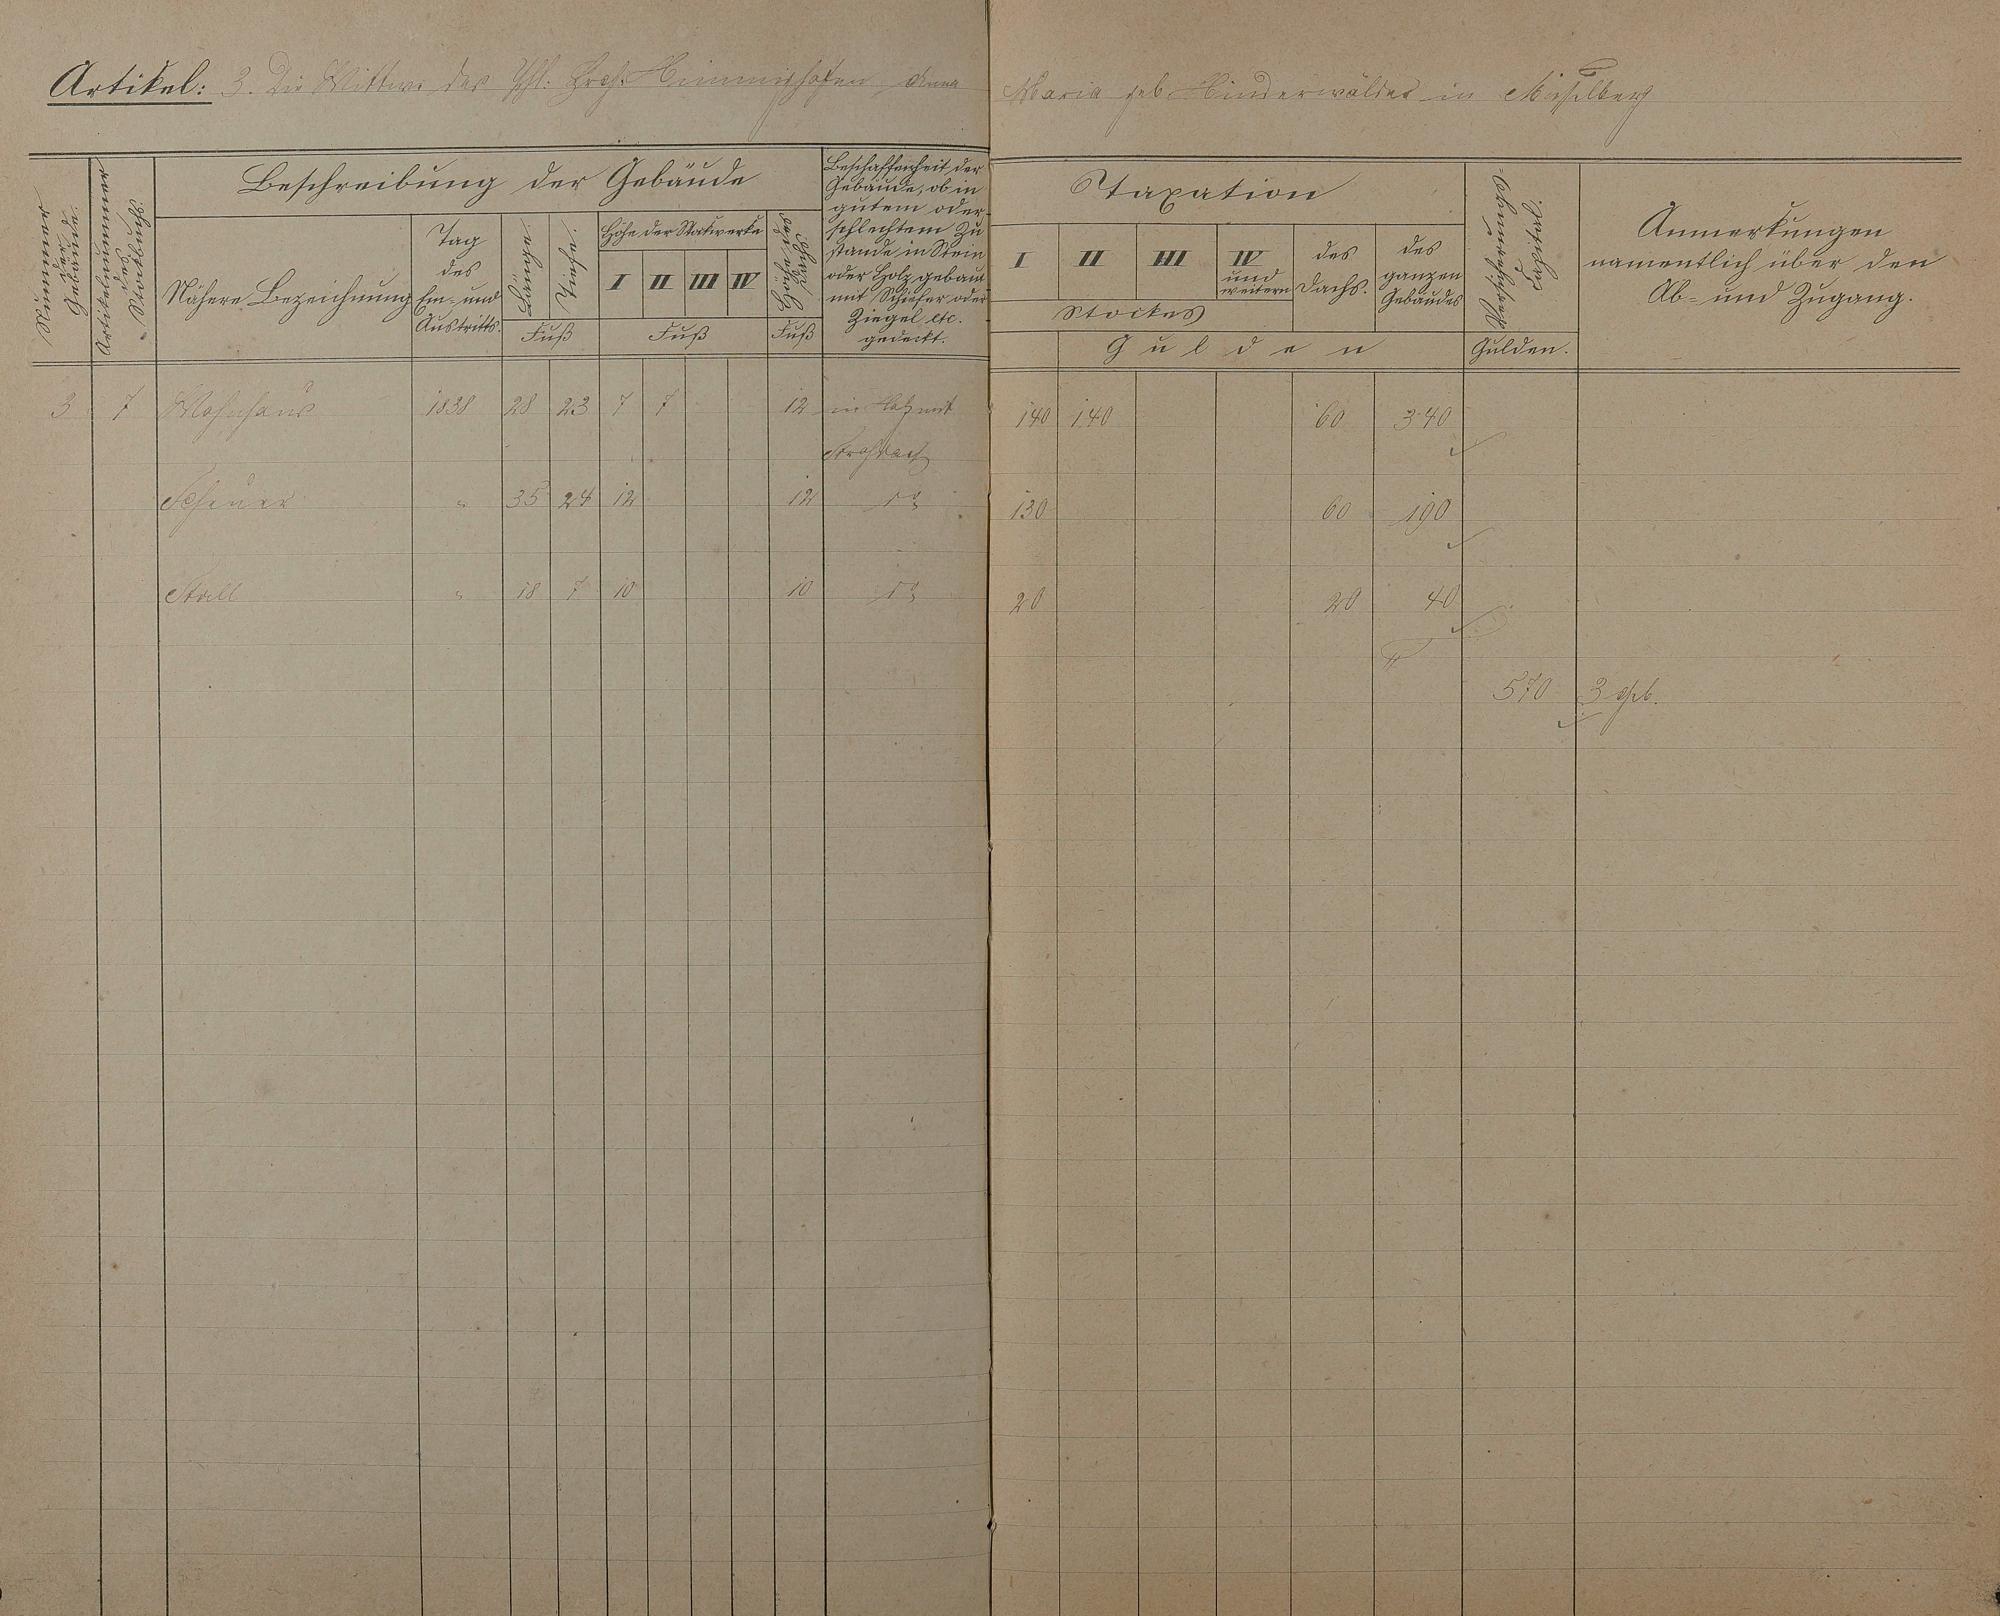 Artikel: 3. Die Wittwe des Phl. Hrch. Himmighofen Anna Maria geb. Hinderwälder in Misselberg
Nummer der Gebäude.
Artikelnummer des Stockbuchs.
Beschreibung der Gebäude
Nähere Bezeichnung
Tag des Ein- und Austritts.
Länge.
Tiefe.
Fuß
Höhe der Stockwerke
I II III IV
Fuß
Dachhöhe
Fuß
Beschaffenheit der
Gebäude, ob in
gutem oder
schlechtem Zu
stande in Stein
oder Holz gebaut
mit Schiefer oder
Ziegel etc.
gedeckt.
Taxation
I II III IV und weitern
Stockes
des Dachs.
des ganzen Gebäudes
Gulden
Gulden.
Anmerkungen
namentlich über den
Ab- und Zugang.
3 7 Wohnhaus 1838 28 23 7 7 12 in Holz mit 140 140 60 340
Strohdach
Scheuer " 35 24 12 12 130 60 190
Stall " 18 7 10 10 20 20 40
570 3 Geb.